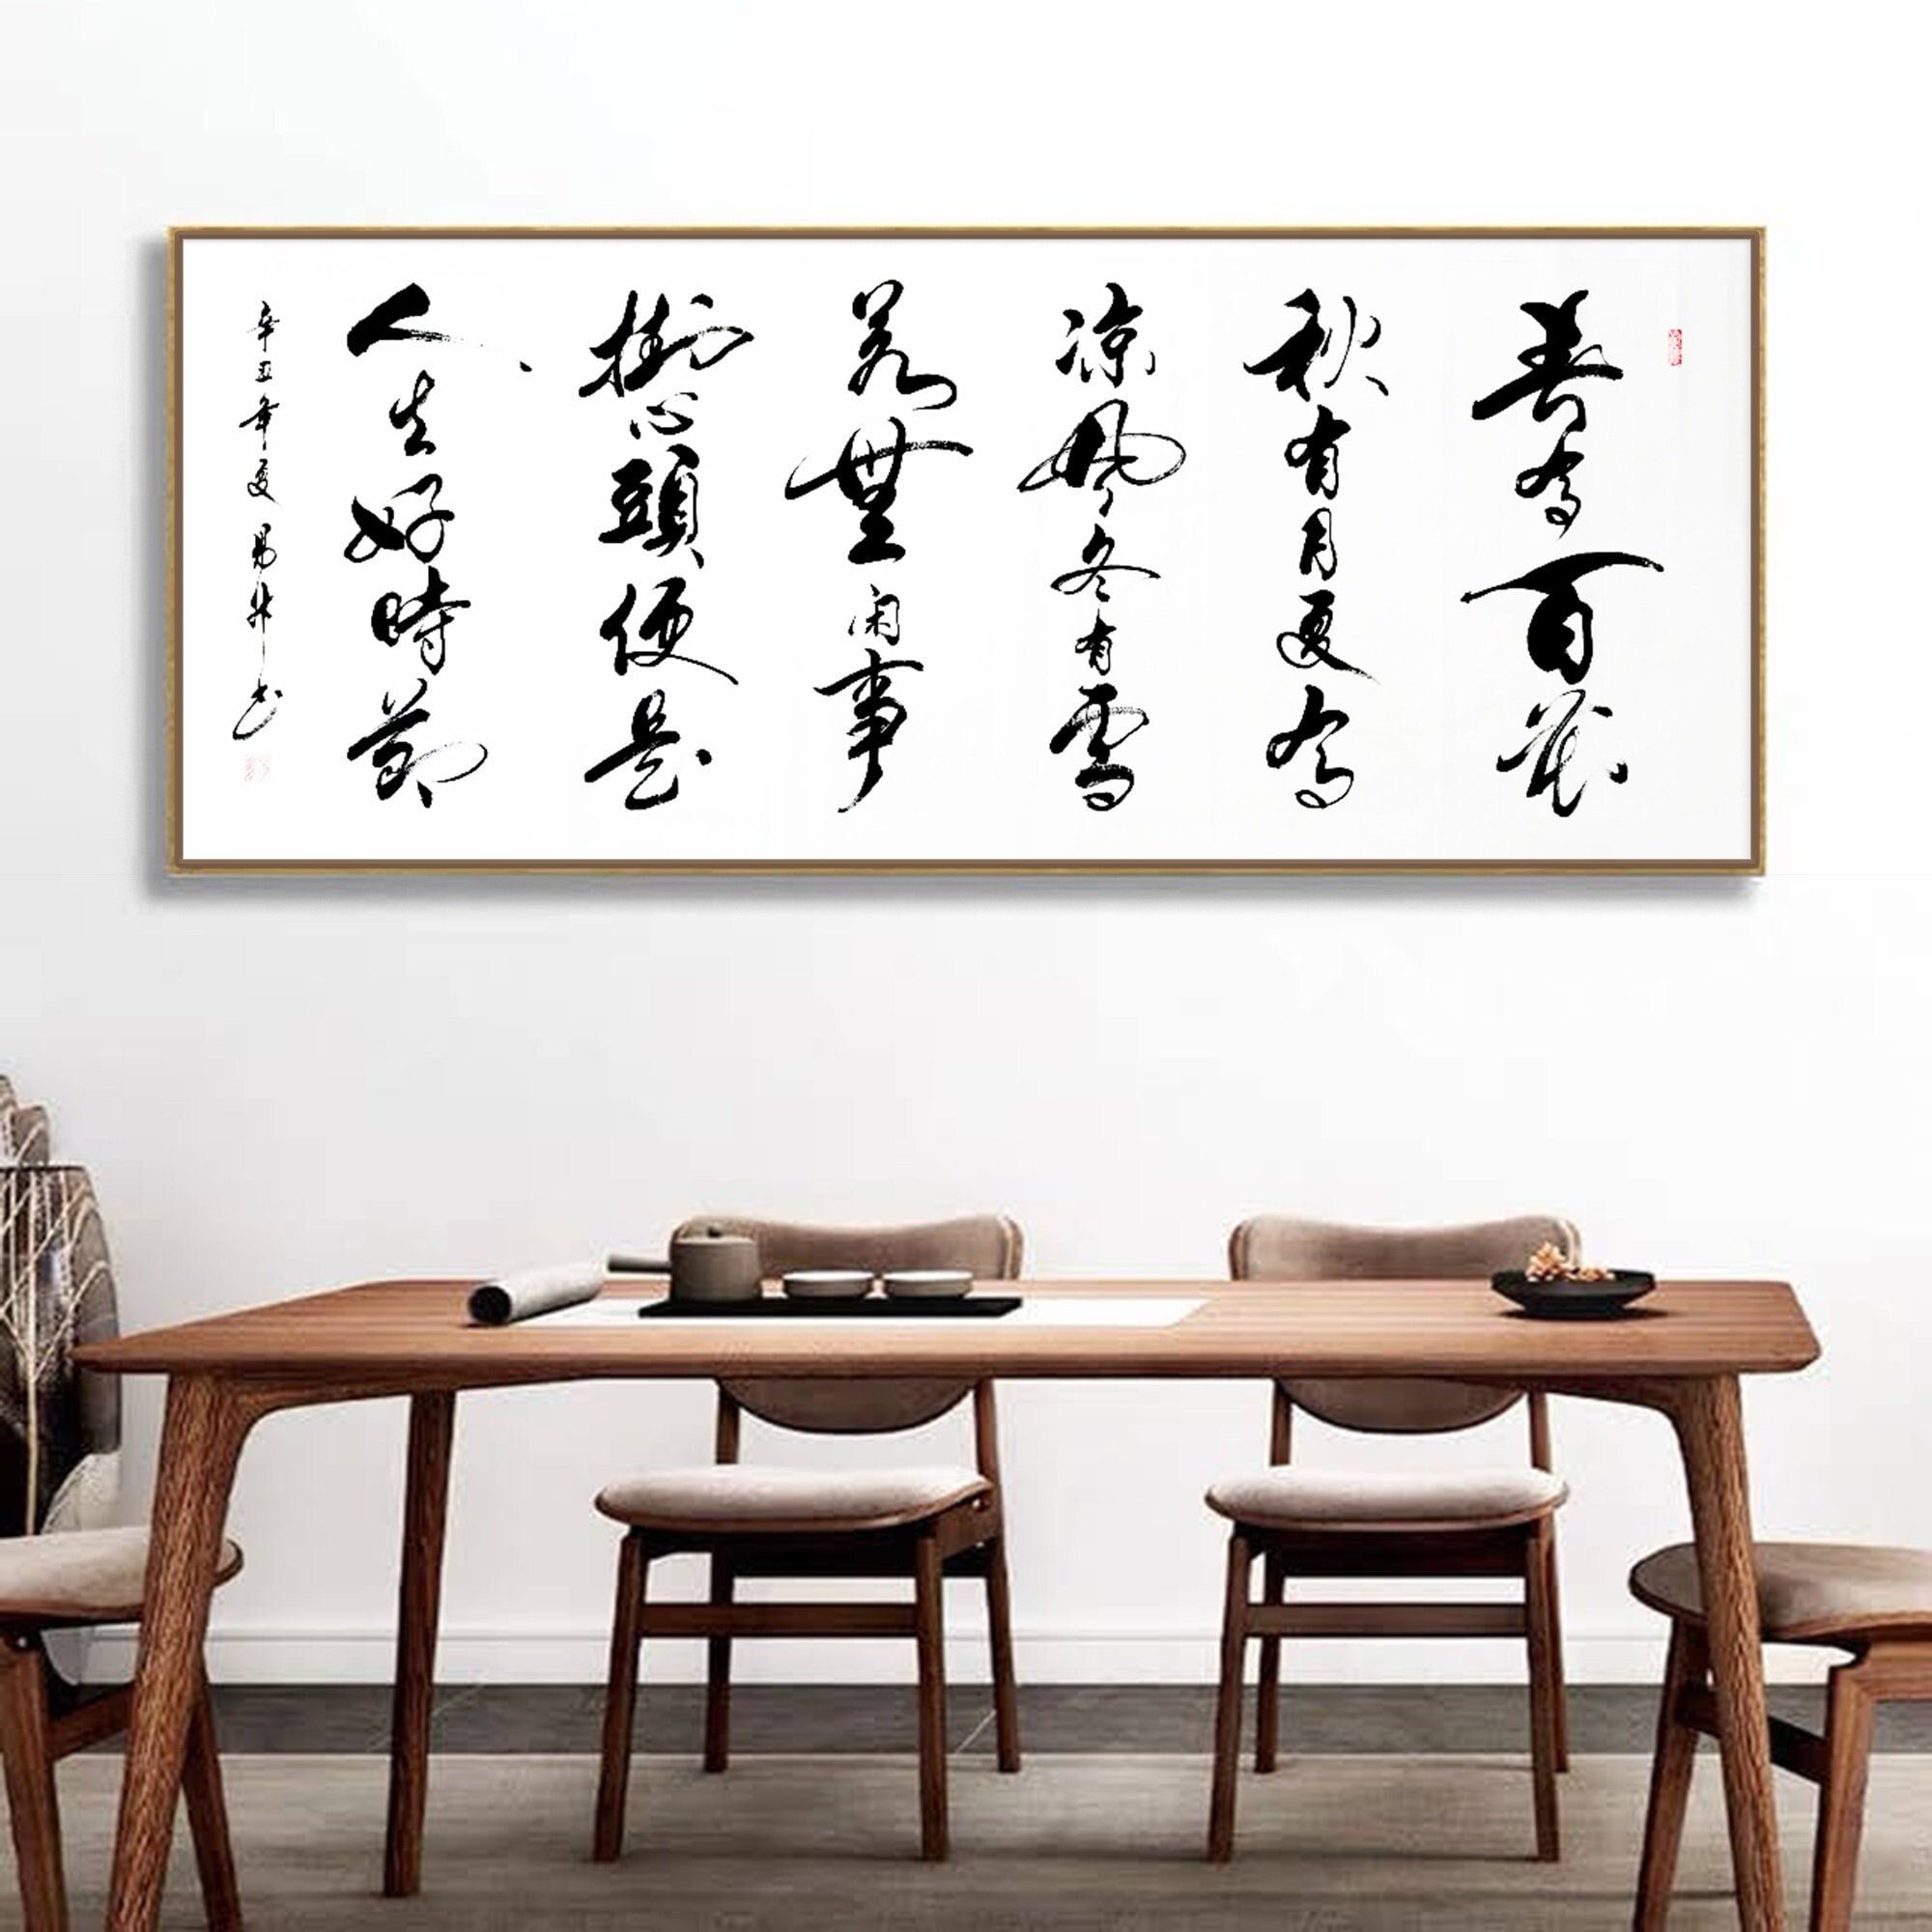 春有百花
秋有月夏有
凉风冬有雪
若無闲事
掛心頭便是
人生好時節
辛丑年夏易书